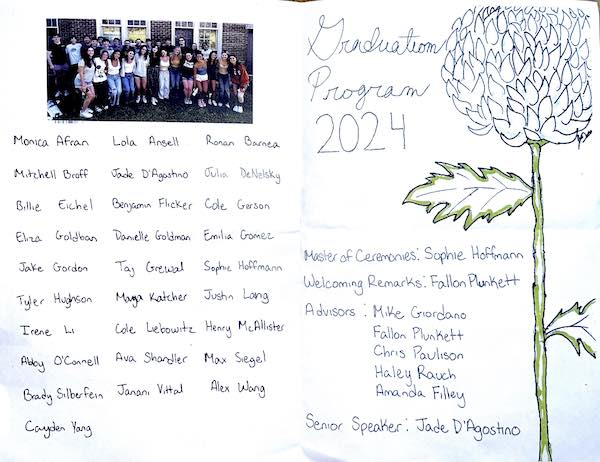 Monica Afran Lola Ansell Ronan Barnea
Mitchell Broff Jade D'Agostino Julia DeNelsky
Billie Eichel Benjamin Flicker Cole Gerson
Eliza Goldban Danielle Goldman Emilia Gomez
Jake Gordon Taj Grewal Sophie Hoffmann
Tyler Hughson Maya Katcher Justin Lang
Irene Li Cole Liebowitz Henry McAllister
Abby O'Connell Ava Shandler Max Siegel
Brady Silberfein Janani Vittal Alex Wang
Cayden Yang
Graduation
Program
2024
Master of Ceremonies: Sophie Hoffmann
Welcoming Remarks: Fallon Plunkett
Advisors : Mike Giordano
Fallon Plunkett
Chris Paulison
Haley Rauch
Amanda Filley
Senior Speaker: Jade D'Agostino